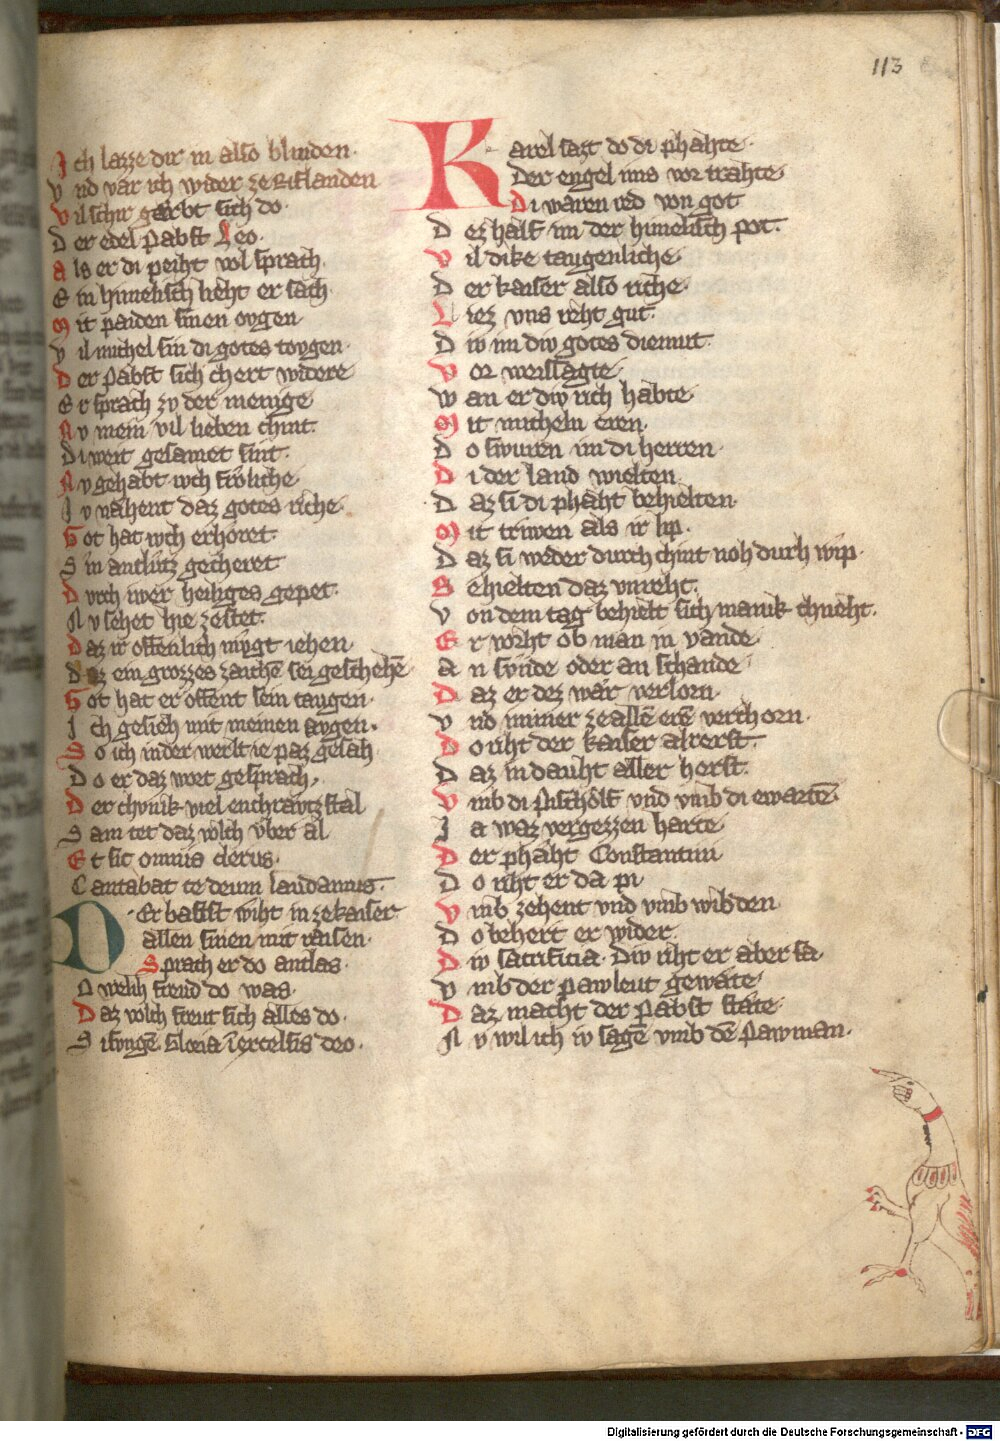 113
Ich lazze dir in also blinden.
Vnd var ich wider ze Riflanden
Vil schir garbt sich do.
Der edel Pabst Leo.
Als er di peiht vol sprach.
Ein himelisch lieht er sach.
Mit paiden sinen ovgen
Vil michel sin di gotes tovgen.
Der Pabst sich chert widere
Er sprach zv der menige
Nv mein vil lieben chint.
Di weit gesamet sint.
Nv gehabt ivch frôliche
Iv nahent daz gotes riche.
Got hat ivch erhoret.
Sin antlutz gecheret
Dvrch iwer heiliges gepet.
Nv sehet hie zestet.
Daz ir offenlich mvgt iehen.
Daz ein grozzes zaichē sei geschehē
Got hat er offent sein taugen.
Ich gesich mit meinen avgen.
So ich inder werlt ie paz gesah
Do er daz wort gesprach.
Der chvnik viel enchravtz stal
Sam tet daz volch vber al
Et sic omnis clerus.
Cantabat te deum laudamus.
Der babst wiht in ze kaiser
allen sinen mit raisen.
Sprach er do antlas.
O welih freud do was.
Daz volch freut sich alles do.
Si svngē Gloria ī excelsis deo.
Karel sazt do di phahte.
Der engel ims vor trahte.
Di waren red von got
Dez half im der himelisch pot.
Vil dike taugenliche.
Der kaiser also riche.
Liez vns reht gut.
Div im div gotes diemut.
Vor weissagte.
Wan er div rich habte.
Mit micheln eren.
Do swuren im di herren.
Di der land wielten.
Daz si di phaht behielten.
Mit triwen als ir lip.
Daz si weder durch chint noh durh wip.
Behielten daz vnreht.
Von dem tag behielt sich manik chneht.
Er vorht ob man in vande
An svnde oder an schande
Daz er dez wär verlorn.
Vnd immer ze allē erē verchorn.
Do riht der kaiser alrerst.
Daz in dauht aller herst.
Vmb di Pischôlf vnd vmb di ewartē.
Ia waz vergezzen harte
Der phaht Constantini
Do riht er da pi
Vmb zehent vnd vmb wibden
Do behert er wider.
Div sacrificia. Div riht er aber sa.
Vmb der pawleut gewäte.
Daz macht der Pabst stäte.
Nv wil ich iv sagē vmb dē Pawman.
Digitalisierung gefördert durch die Deutsche Forschungsgemeinschaft - DFG